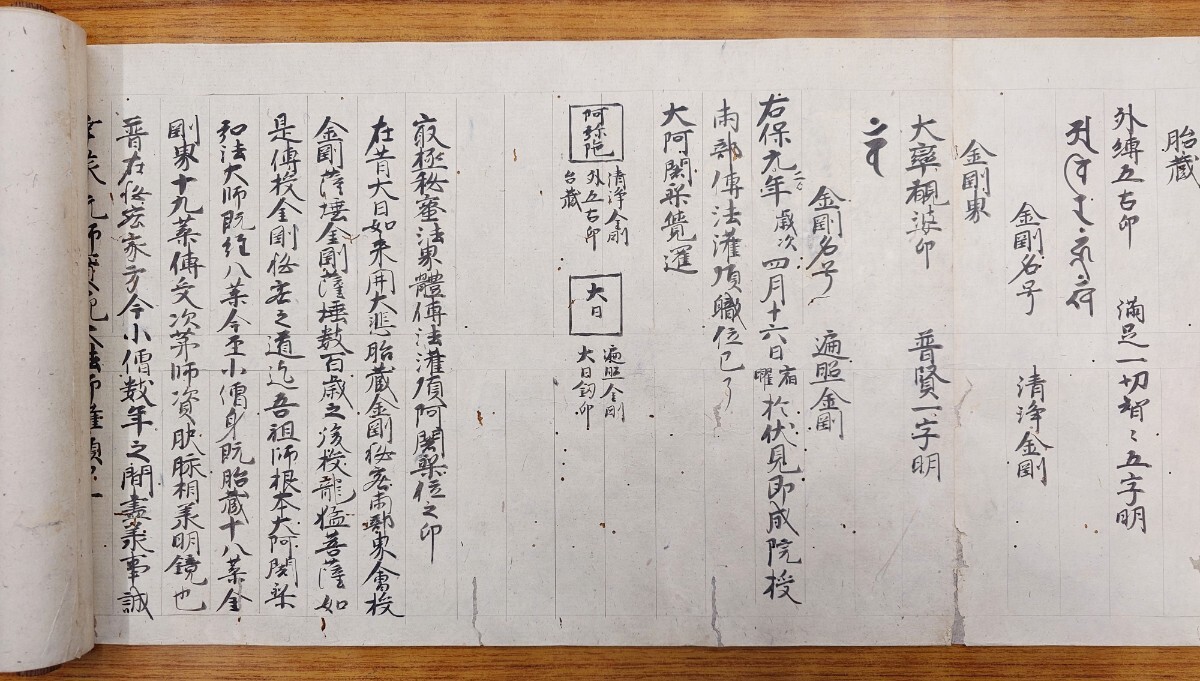 胎蔵
外縛五古印　滿足一切智〻五字明
金剛名号　清浄金剛
金剛界
大率覩婆印　普賢一字明
金剛名号　遍照金剛
右保元〻年歳次四月十六日宿曜於伏見即成院授
両部傳法灌頂職位已了
大阿闍梨覺暹
阿弥陀　清浄金剛　外五古印　台蔵
大日　遍照金剛　大日釼印
㝡極秘蜜法界體傳法灌頂阿闍梨位之印
在昔大日如来開大悲胎蔵金剛秘密両部界會授
金剛薩埵金剛薩埵数百歳之後授龍猛菩薩如
是傳授金剛秘密之道迄吾祖師根本大阿闍梨
弘法大師既経八葉今至小僧身既胎蔵十八葉金
剛界十九葉傳受次第師資血脉相承明鏡也
普在秘密家方今小僧数年之間盡承事誠